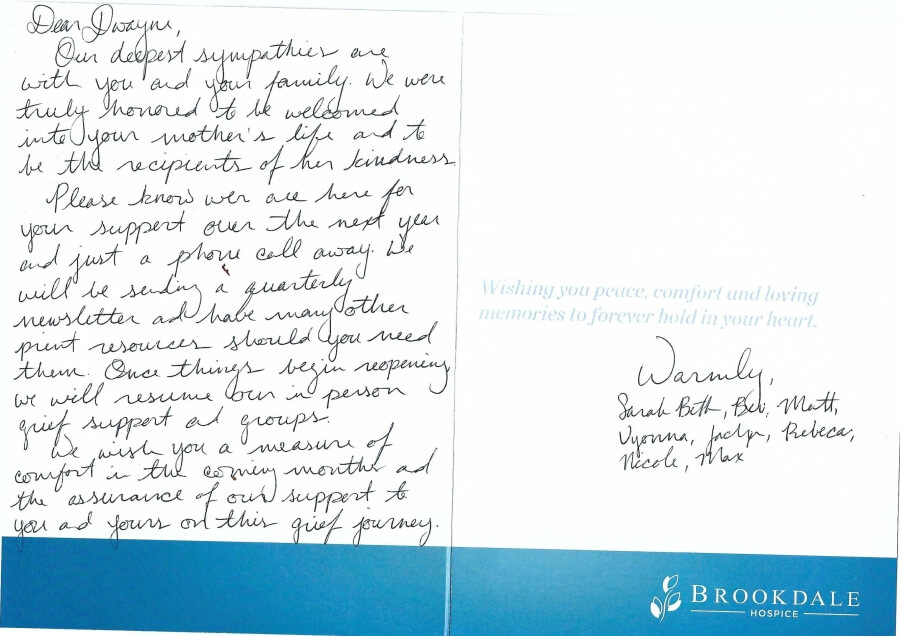 Dear Dwayne,
Our deepest sympathies are
with you and your family. We were
truly honored to be welcomed
into your mother's life and to
be the recipients of her kindness
Please know wer are here for
your support over the next year
and just a phone call away. We
will be sending a quarterly
newsletter ad have many other
print resources should you need
them. Once things begin reopening
we will resume our in person
grief support ad groups.
We wish you a measure of
comfort in the coming months ad
the assurance of our support to
you ad yours on this grief journey.
Wishing you peace, comfort and loving
memories to forever hold in your heart.
Warmly,
Sarah Beth, Bev, Matt,
Vyonna, Jaclyn, Rebeca,
Nicole, Max
BROOKDALE
HOSPICE